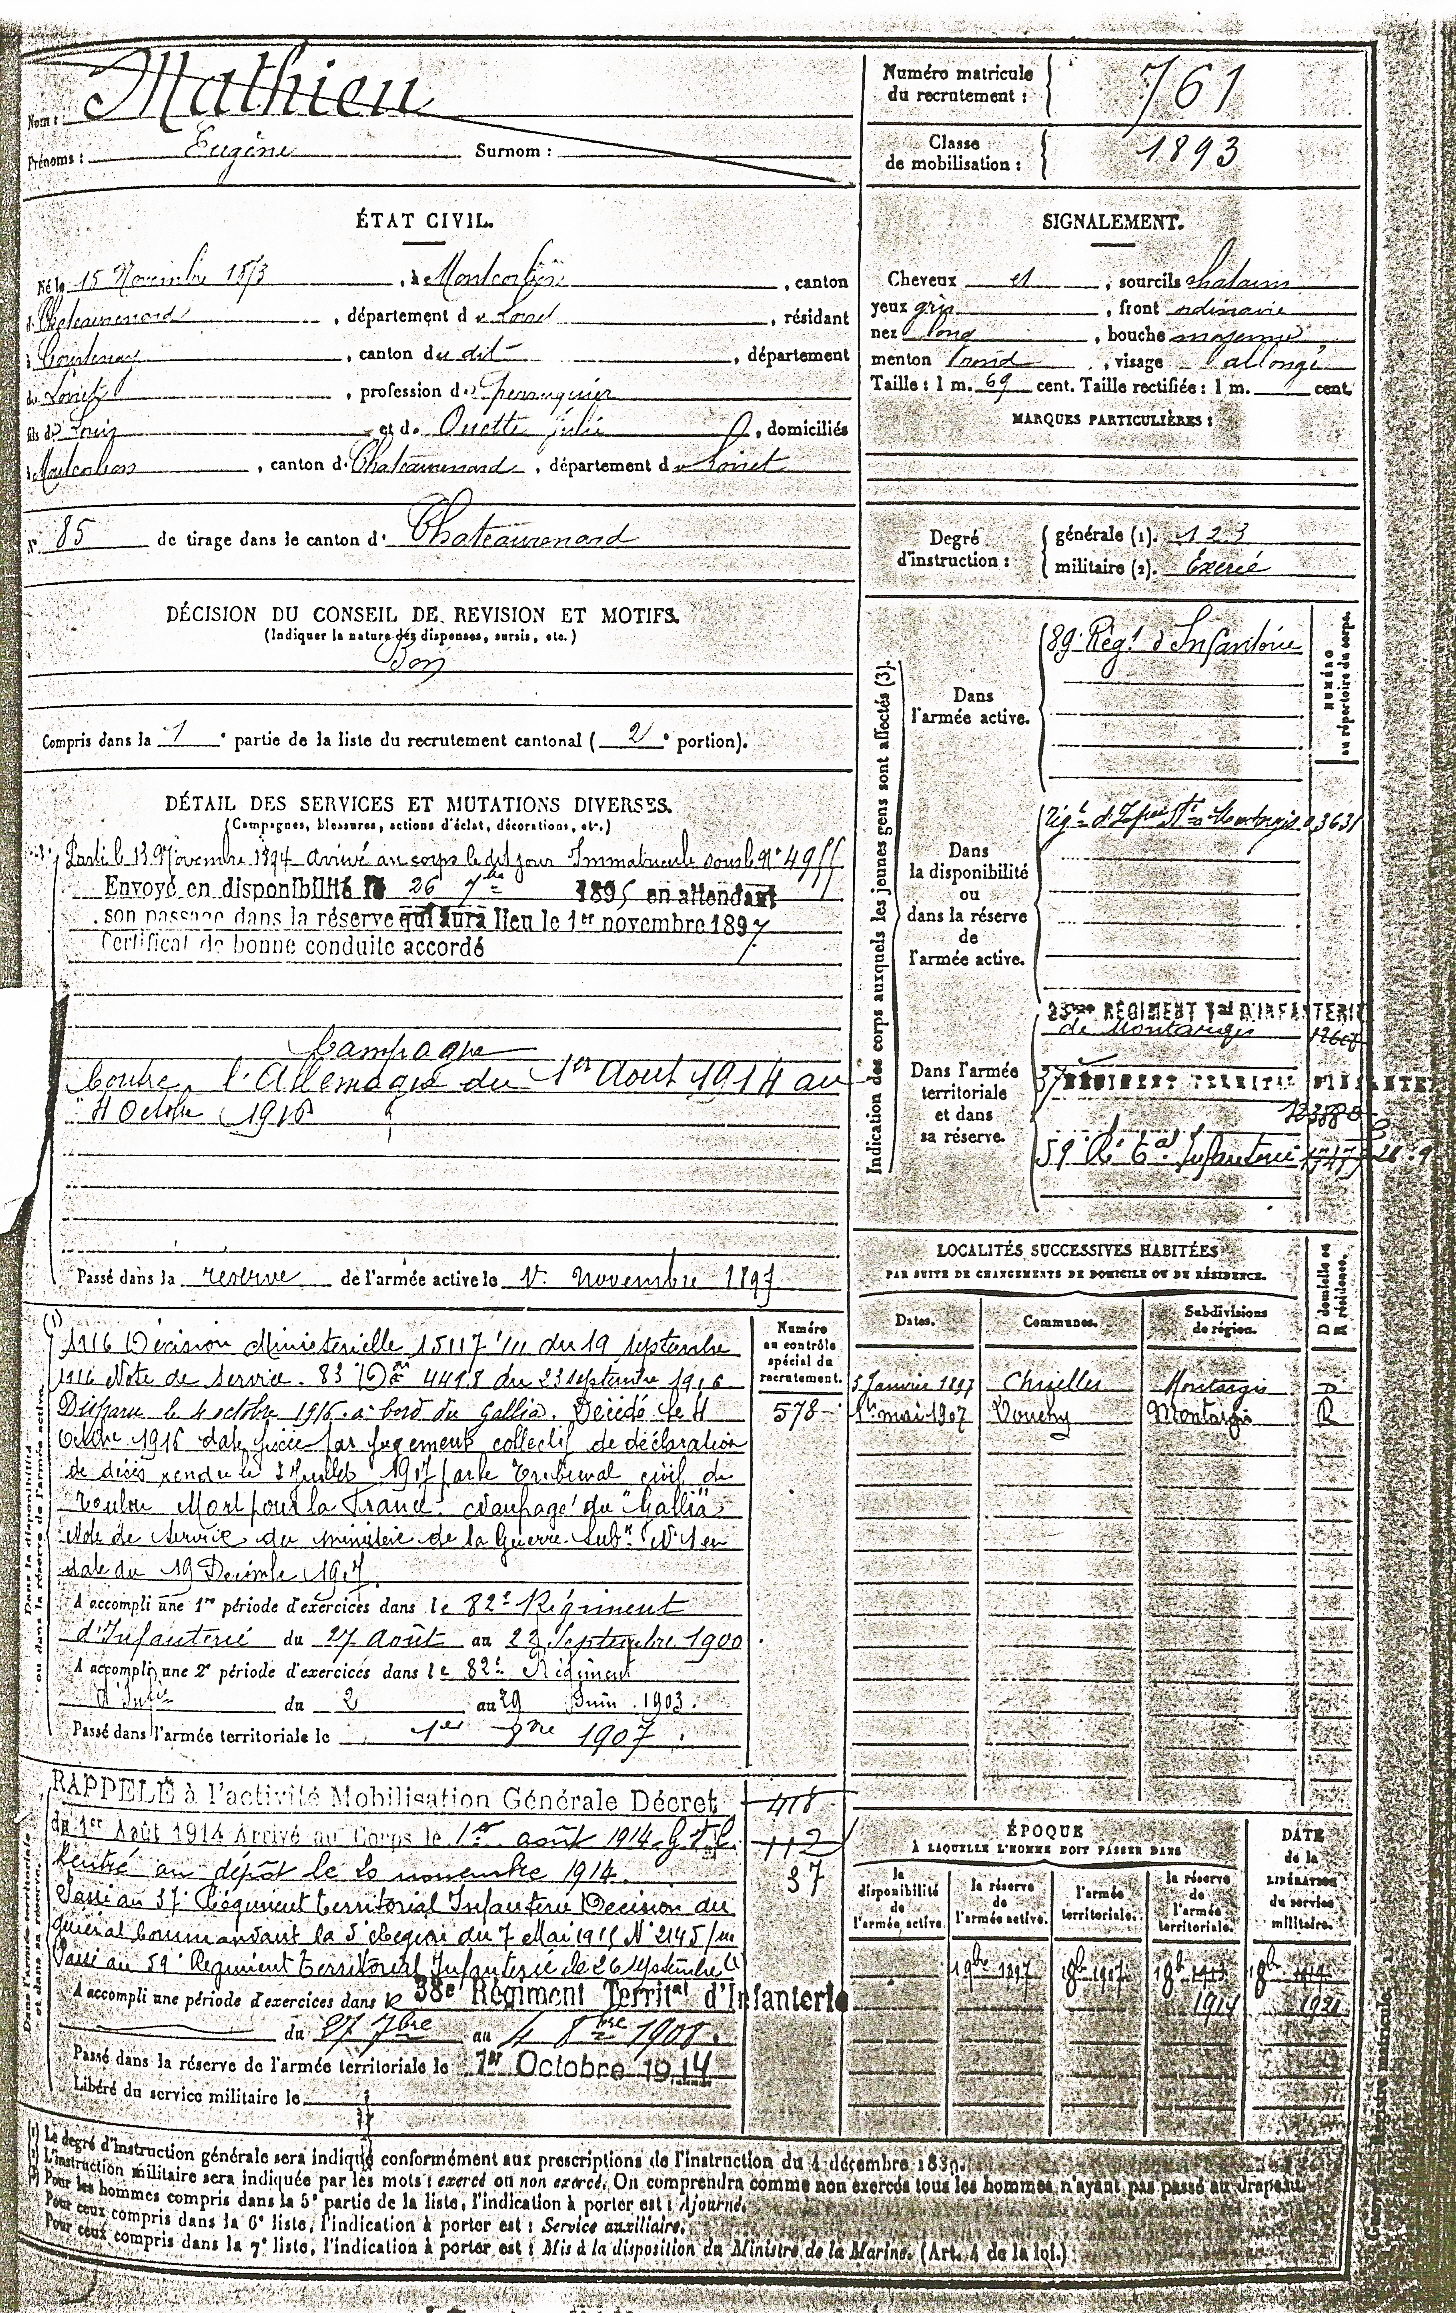 Nom : Mathieu
Prénoms : Eugène Surnom :
Numéro matricule du recrutement : 761
Classe de mobilisation : 1893
ÉTAT CIVIL.
Né le 15 Novembre 1873, à Montcorbon, canton
d Chateaurenard, département du Loiret, résidant
à Courtenay, canton du dit, département
du Loiret, profession de perruquier
fils de Louis et de Ouette Julie, domiciliés
à Montcorbon, canton d Chateaurenard, département du Loiret
N° 85 de tirage dans le canton d Chateaurenard
SIGNALEMENT.
Cheveux et, sourcils chatains
yeux gris, front ordinaire
nez long, bouche moyenne
menton rond, visage allongé
Taille : 1 m. 69 cent. Taille rectifiée : 1 m. cent.
MARQUES PARTICULIÈRES :
Degré d'instruction :
générale (1). 1 2 3
militaire (2). Exercé
DÉCISION DU CONSEIL DE REVISION ET MOTIFS.
(Indiquer la nature des dispenses, sursis, etc.)
Bon
Compris dans la 1e partie de la liste du recrutement cantonal (2e portion).
DÉTAIL DES SERVICES ET MUTATIONS DIVERSES.
(Campagnes, blessures, actions d'éclat, décorations, etc.)
Parti le 13 Novembre 1894 arrivé au corps le dit jour Immatriculé sous le N°
Envoyé en disponibilité le 26 7bre 1895 en attendant
son passage dans la réserve qui aura lieu le 1er novembre 1897
Certificat de bonne conduite accordé
Campagne
Contre l'Allemagne du 1er Aout 1914 au
4 Octobre 1916
Passé dans la réserve de l'armée active le 1er novembre 1897
Indication des corps auxquels les jeunes gens sont affectés (3).
NUMÉRO au répertoire du corps.
Dans l'armée active.
89e Régt d'Infanterie
Dans la disponibilité ou dans la réserve de l'armée active.
Régt d'Infrie Montargis 03631
Dans l'armée territoriale et dans sa réserve.
RÉGIMENT Tal D'INFANTERIE
de Montargis
37 RÉGIMENT TERRITAL D'INFANTERIE
59e Rt Tal Infanterie
LOCALITÉS SUCCESSIVES HABITÉES
PAR SUITE DE CHANGEMENTS DE DOMICILE OU DE RÉSIDENCE.
D domicile ou R résidence.
Dates. Communes. Subdivisions de région.
5 Janvier 1897 Chuelles Montargis D
1er mai 1907 Douchy Montargis R
Dans la disponibilité ou dans la réserve de l'armée active.
Numéro au contrôle spécial du recrutement.
578
(1)
1916 Décision Ministerielle 15117 1/11 du 19 septembre
1916 Note de service 83 4418 du 23 septembre 1916
Disparu le 4 octobre 1916 à bord du Gallia. Décédé le 4
Octobre 1916 date fixée par jugement collectif de déclaration
de décès rendu le 3 Juillet 1917 par le Tribunal civil de
Toulon Mort pour la France. Naufragé du "Gallia"
Note de service du ministère de la Guerre
date du 19 Decembre 1917
A accompli une 1re période d'exercices dans le 82e Régiment
d'Infanterie du 27 août au 23 Septembre 1900
A accompli une 2e période d'exercices dans le 82e Régiment
d'Infie du 2 au 29 Juin 1903.
Passé dans l'armée territoriale le 1er 9bre 1907
Dans l'armée territoriale et dans sa réserve.
RAPPELÉ à l'activité Mobilisation Générale Décret
418
du 1er Août 1914 Arrivé au Corps le 1er août 1914
112
Rentré au dépôt le 20 novembre 1914.
37
Passé au 37e Régiment territorial Infanterie Decision du
général Commandant la 5e Region du 7 Mai 1915 N° 2145
Passé au 59e Regiment territorial Infanterie le 26 septembre (1)
A accompli une période d'exercices dans le 38e Régiment Territal d'Infanterie
du 27 7bre au 4 8bre 1908.
Passé dans la réserve de l'armée territoriale le 1er Octobre 1914
Libéré du service militaire le
ÉPOQUE
À LAQUELLE L'HOMME DOIT PASSER DANS
la disponibilité de l'armée active.
la réserve de l'armée active.
l'armée territoriale.
la réserve de l'armée territoriale.
DATE de la LIBÉRATION du service militaire.
1 9bre 1897
1914
1921
(1) Le degré d'instruction générale sera indiqué conformément aux prescriptions de l'instruction du 4 décembre 1889.
(2) L'instruction militaire sera indiquée par les mots : exercé ou non exercé. On comprendra comme non exercés tous les hommes n'ayant pas passé au drapeau.
(3) Pour les hommes compris dans la 5e partie de la liste, l'indication à porter est : Ajourné.
Pour ceux compris dans la 6e liste, l'indication à porter est : Service auxiliaire.
Pour ceux compris dans la 7e liste, l'indication à porter est : Mis à la disposition du Ministre de la Marine. (Art. 4 de la loi.)